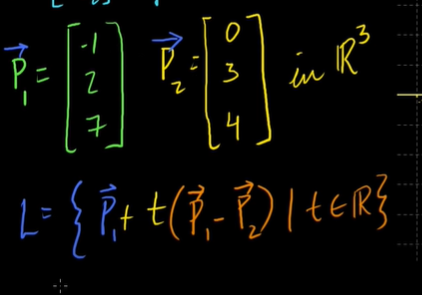 P⃗₁ = [-1 2 7] P⃗₂ = [0 3 4] in ℝ³
L = { P⃗₁ + t(P⃗₁ - P⃗₂) | t ∈ ℝ }